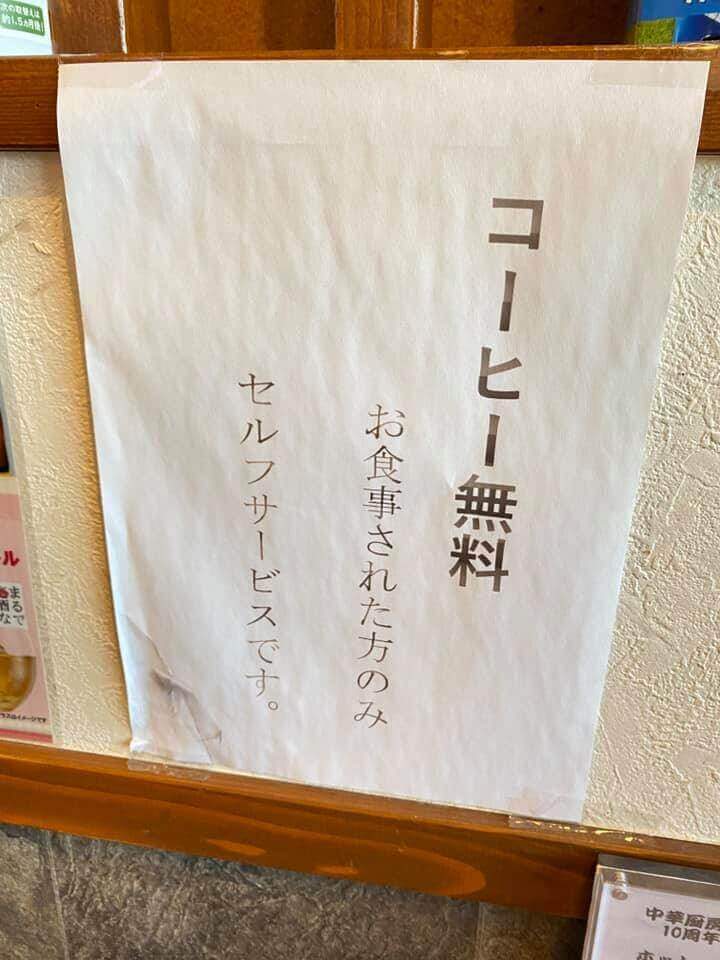 コーヒー無料
お食事された方のみ
セルフサービスです。
次の取替えは
約1.5ヵ月後!
ル
まる
なで
中華厨房
10周年